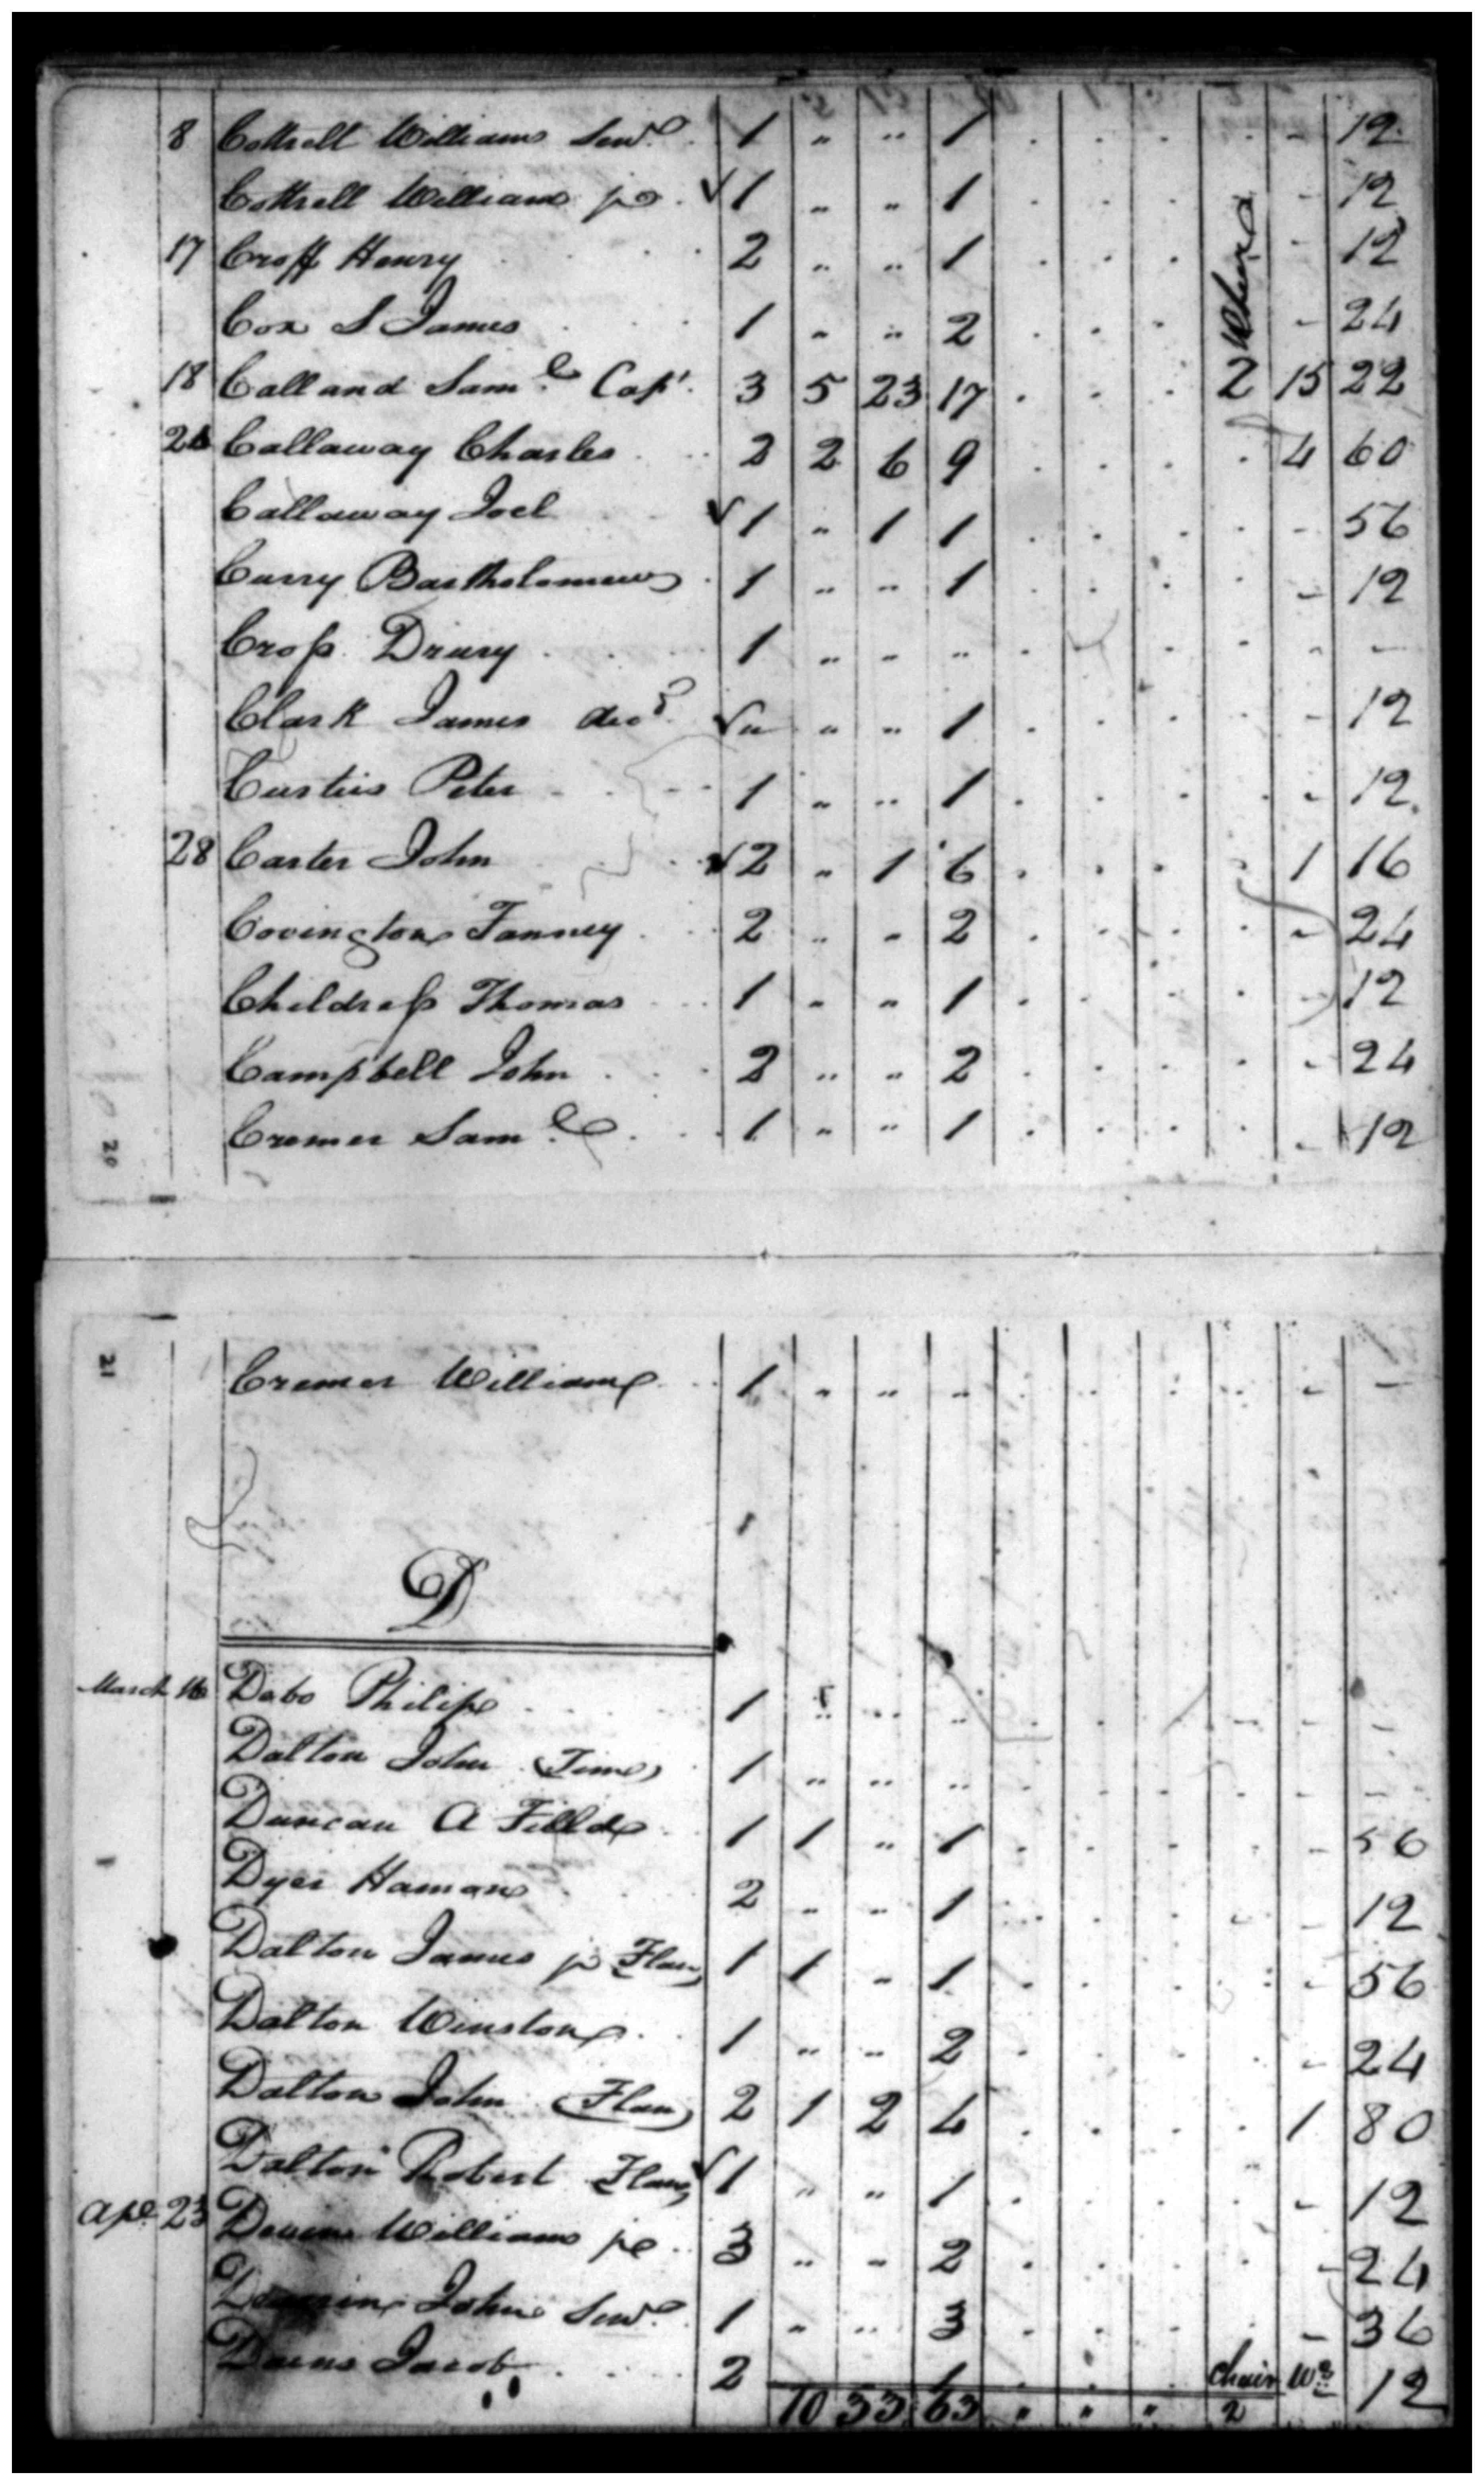 8 Cottrell William Senr. 1 " " 1 . . . . - 12
Cottrell William jr √ 1 " " 1 . . . - 12
17 Croff Henry 2 " " 1 . . . - 12
Cox S James 1 " " 2 . . . - 24
18 Calland Saml. Capt. 3 5 23 17 . . . 2 Wheeld 15 22
26 Callaway Charles 2 2 6 9 . . . . 4 60
Callaway Joel √ 1 " 1 1 . . . . - 56
Curry Bartholomew 1 " " 1 . . . . - 12
Cross Drury 1 " " " . . . . - -
Clark James decd. √ " " " 1 . . . . - 12
Curtiis Peter 1 " " 1 . . . . - 12
28 Carter John √ 2 " 1 6 . . . . 1 16
Covington Fanney 2 " " 2 . . . . - 24
Childress Thomas 1 " " 1 . . . . - 12
Campbell John 2 " " 2 . . . . - 24
Cremer Saml. 1 " " 1 . . . . - 12
20
21
Cremer William 1 " " " . . . . - -
D
March 16 Dabo Philip 1 " " " . . . - - -
Dalton John (Time) 1 " " " . . . . - -
Duncan A Filld 1 1 " 1 . . . . - 56
Dyer Haman 2 " " 1 . . . . - 12
Dalton James jr Flan 1 1 " 1 . . . . - 56
Dalton Winston 1 " " 2 . . . . - 24
Dalton John (Flan) 2 1 2 4 . . . . 1 80
Dalton Robert Flan √ 1 " " 1 . . . " - 12
Apl. 23 William jr 3 " " 2 . . . . - 24
John Senr. 1 " " 3 . . . . - 36
Jacob 2 1 . . . chair Ws. 12
10 33 63 " " " 2